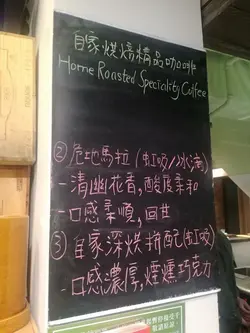 自家烘焙精品咖啡
Home Roasted Speciality Coffee
② 危地馬拉 (虹吸/冰滴)
-清幽花香,酸度柔和
-口感柔順,回甘
③ 自家深烘拼配(虹吸)
-口感濃厚,煙燻巧克力